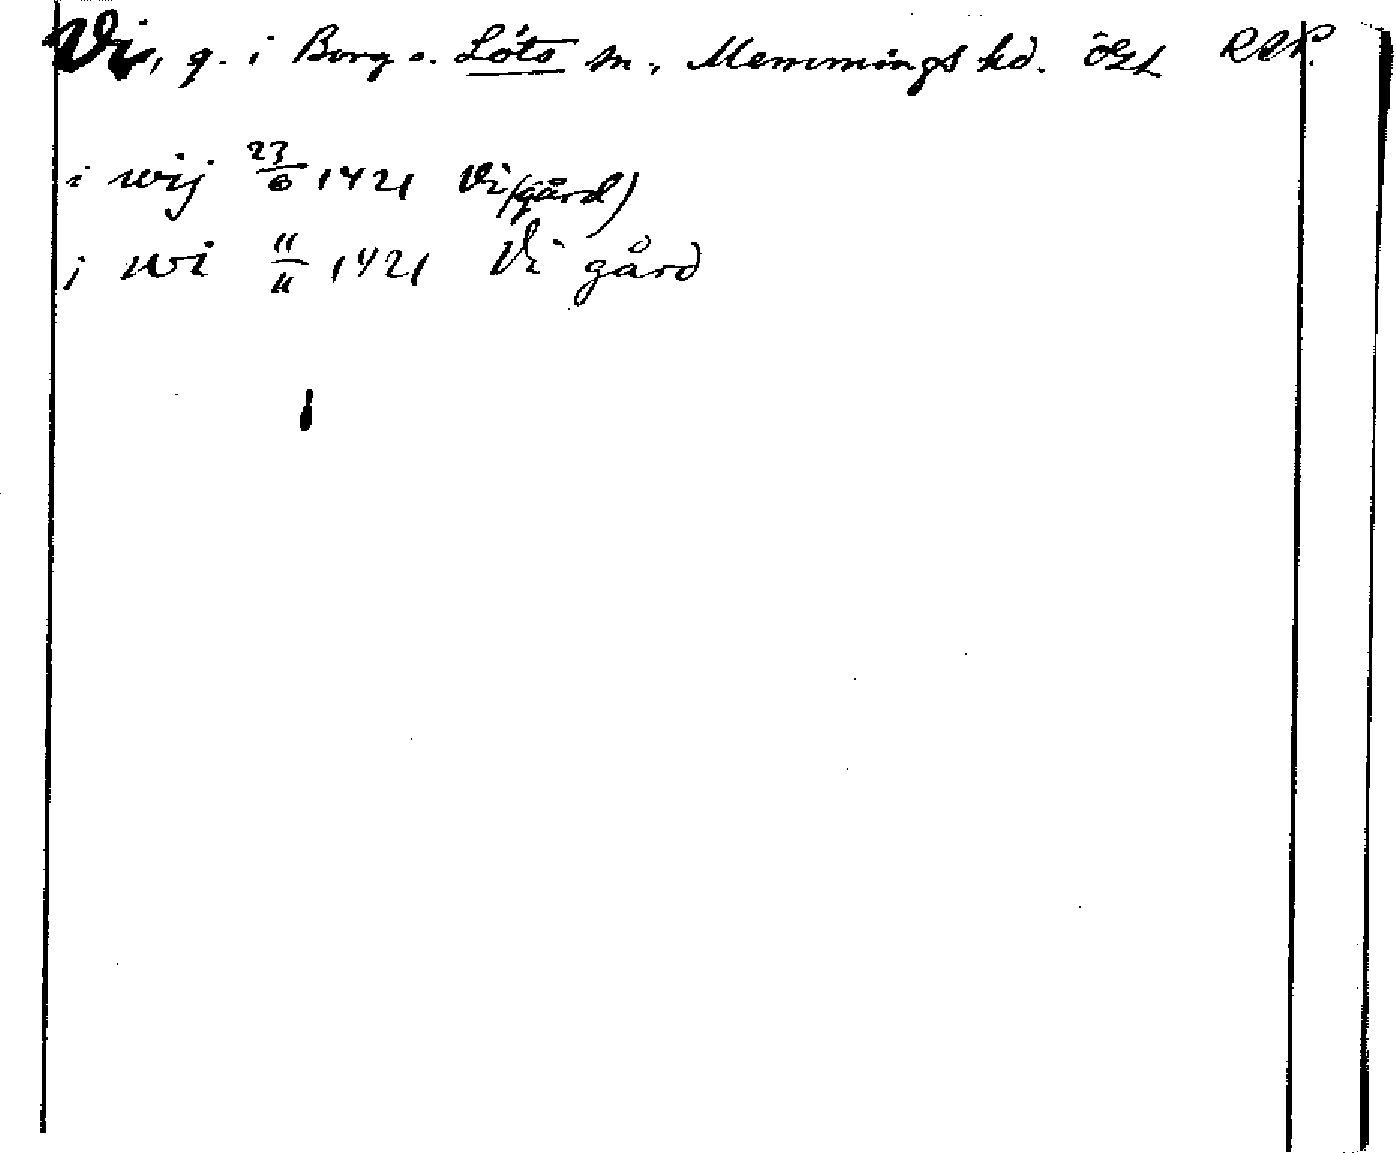 Vi, g. i Borg o. Löts sn, Memmings hd. Ögl
i wij 23/6 1421 Vi (gård)
j wi 11/11 1421 Vi gård